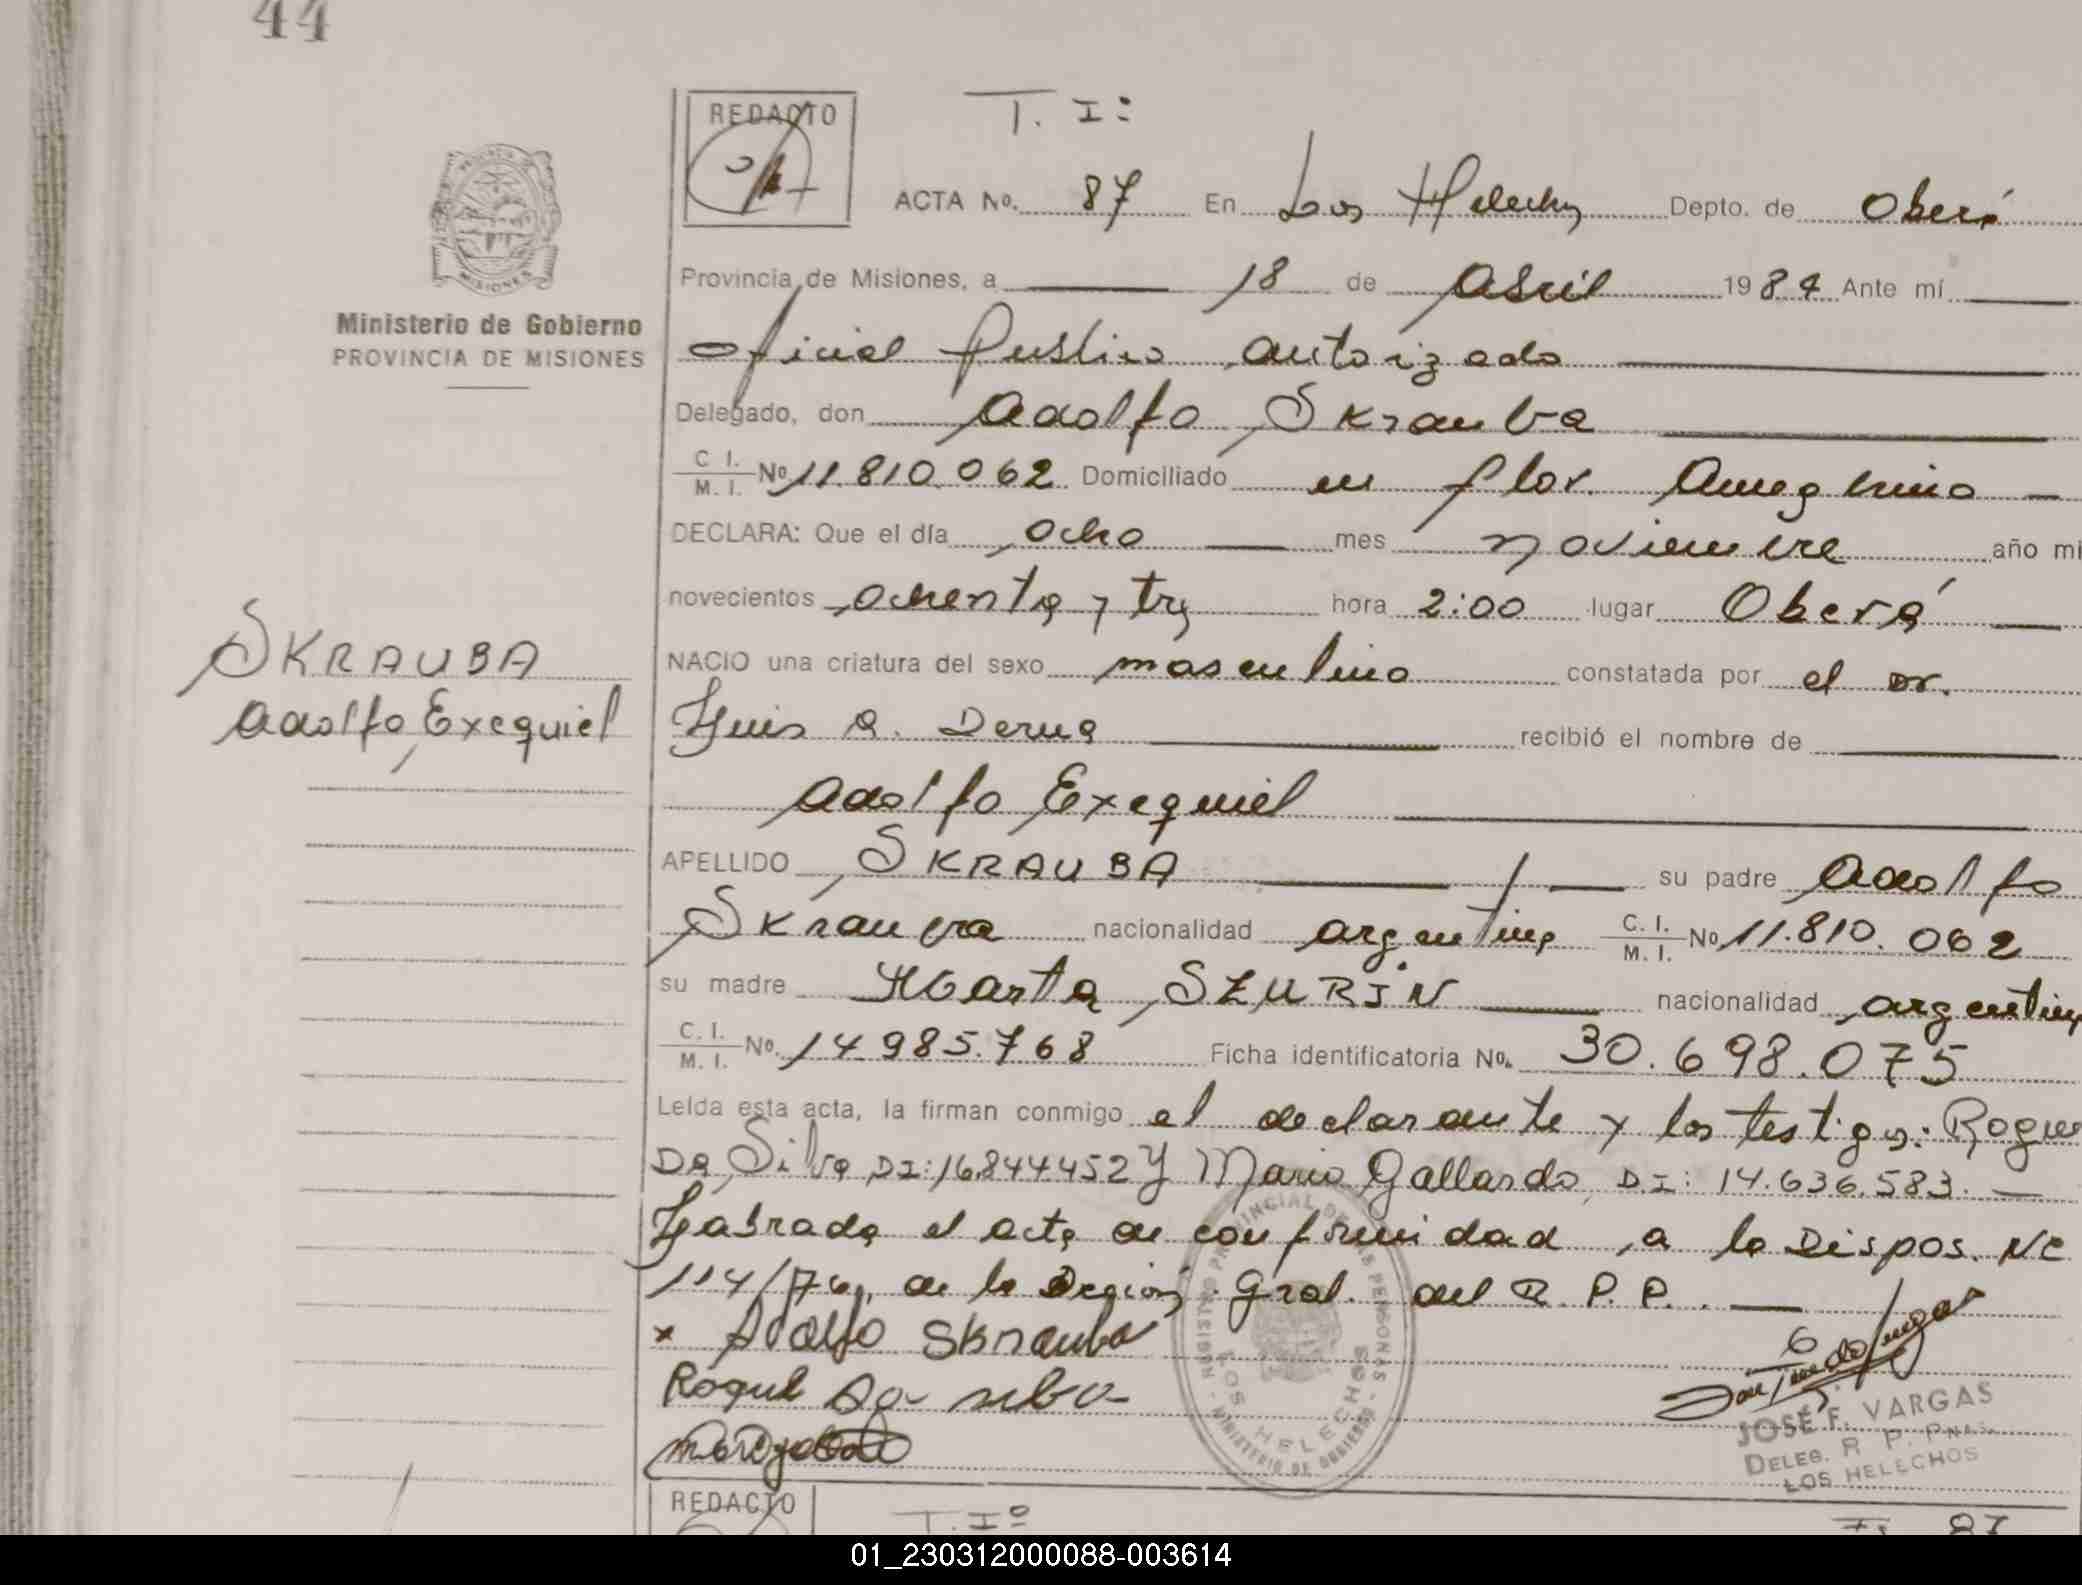 44
REDACTO
T. I:
ACTA No. 87 En Los Helechos Depto. de Oberá
Provincia de Misiones, a 18 de Abril 1984 Ante mí
Ministerio de Gobierno
PROVINCIA DE MISIONES
oficial Publico autorizado
Delegado, don Adolfo Skrauba
C. I. / M. I. No 11.810.062 Domiciliado en flor. Ameghino
DECLARA: Que el día ocho mes noviembre año mi
novecientos ochenta y tres hora 2:00 lugar Oberá
SKRAUBA
Adolfo Exequiel
NACIO una criatura del sexo masculino constatada por el Dr.
Luis A. Derna recibió el nombre de
Adolfo Exequiel
APELLIDO SKRAUBA su padre Adolfo
Skrauba nacionalidad argentina C. I. / M. I. No 11.810.062
su madre Marta SZURIN nacionalidad argentina
C. I. / M. I. No. 14.985.768 Ficha identificatoria No. 30.698.075
Leída esta acta, la firman conmigo el declarante y los testigos: Roque
Da Silva DI: 16.844.452 y Mario Gallardo, DI: 14.636.583.
Labrada el acta de conformidad a la Dispos. Nº
114/76, de la Gral. del R. P. P.
x Adolfo Skrauba
Roque Da Silva
REGISTRO PROVINCIAL DE LAS PERSONAS
LOS HELECHOS
MINISTERIO DE GOBIERNO
JOSÉ F. VARGAS
DELEG. R. P. PNAS.
LOS HELECHOS
REDACTO
T. Iº
87
01_230312000088-003614